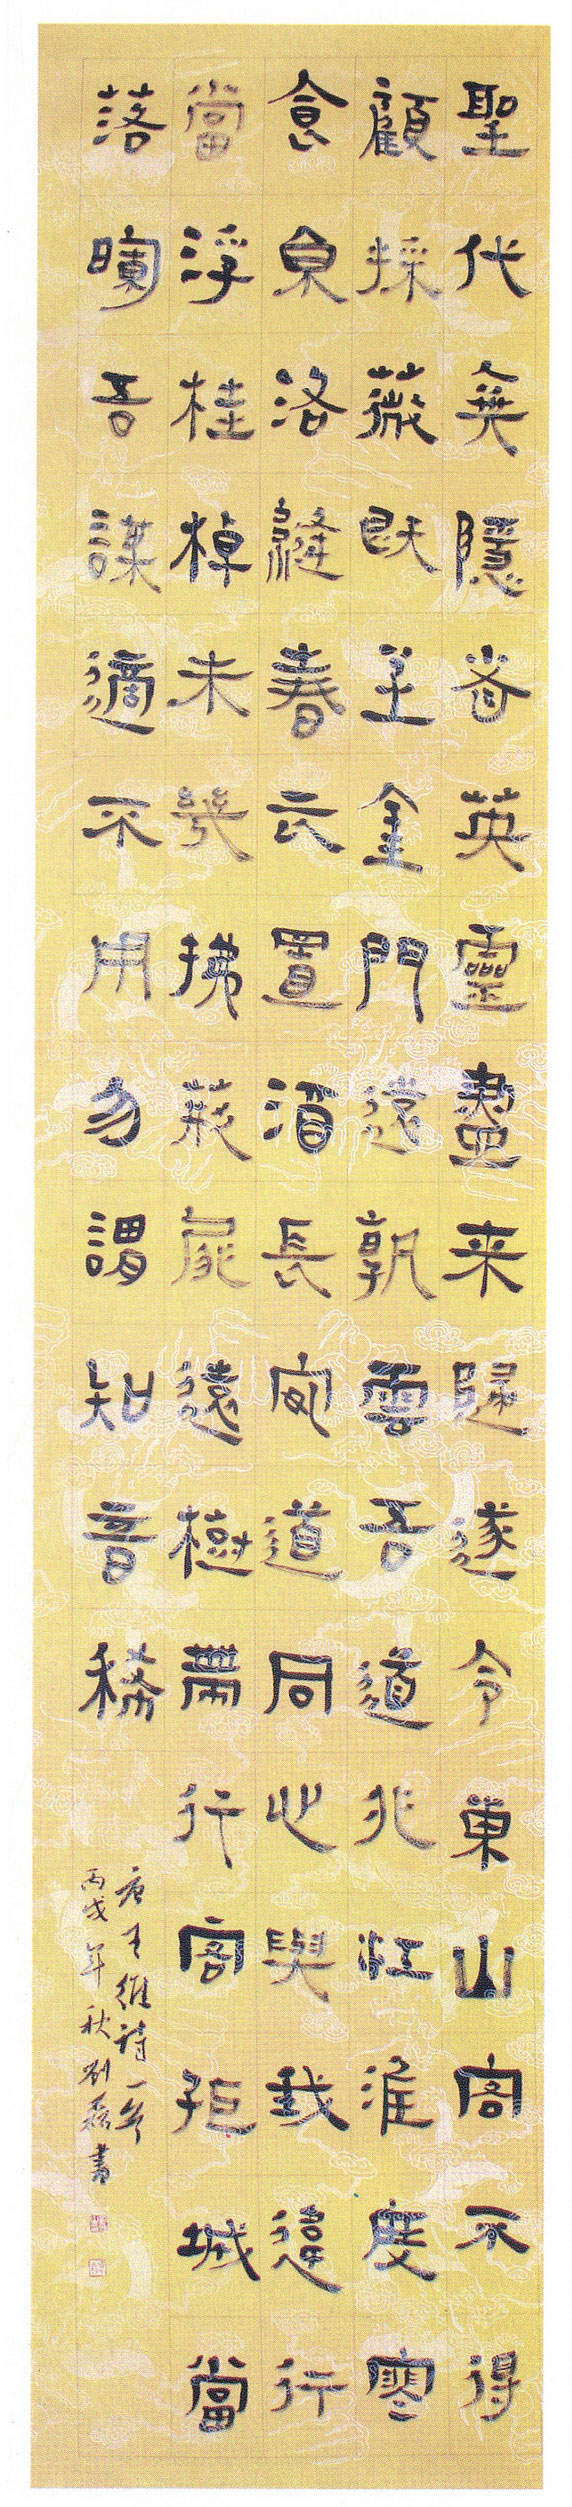 聖代無隱者英靈盡来歸遂令東山客不得
顧採薇既至金門遠孰雲吾道非江淮度寒
食京洛縫春衣置酒長安道同心與我違行
當浮桂棹未幾拂荊扉遠樹帶行客孤城當
落暉吾謀適不用勿謂知音稀
唐王維詩一首
丙戌年秋刘磊書